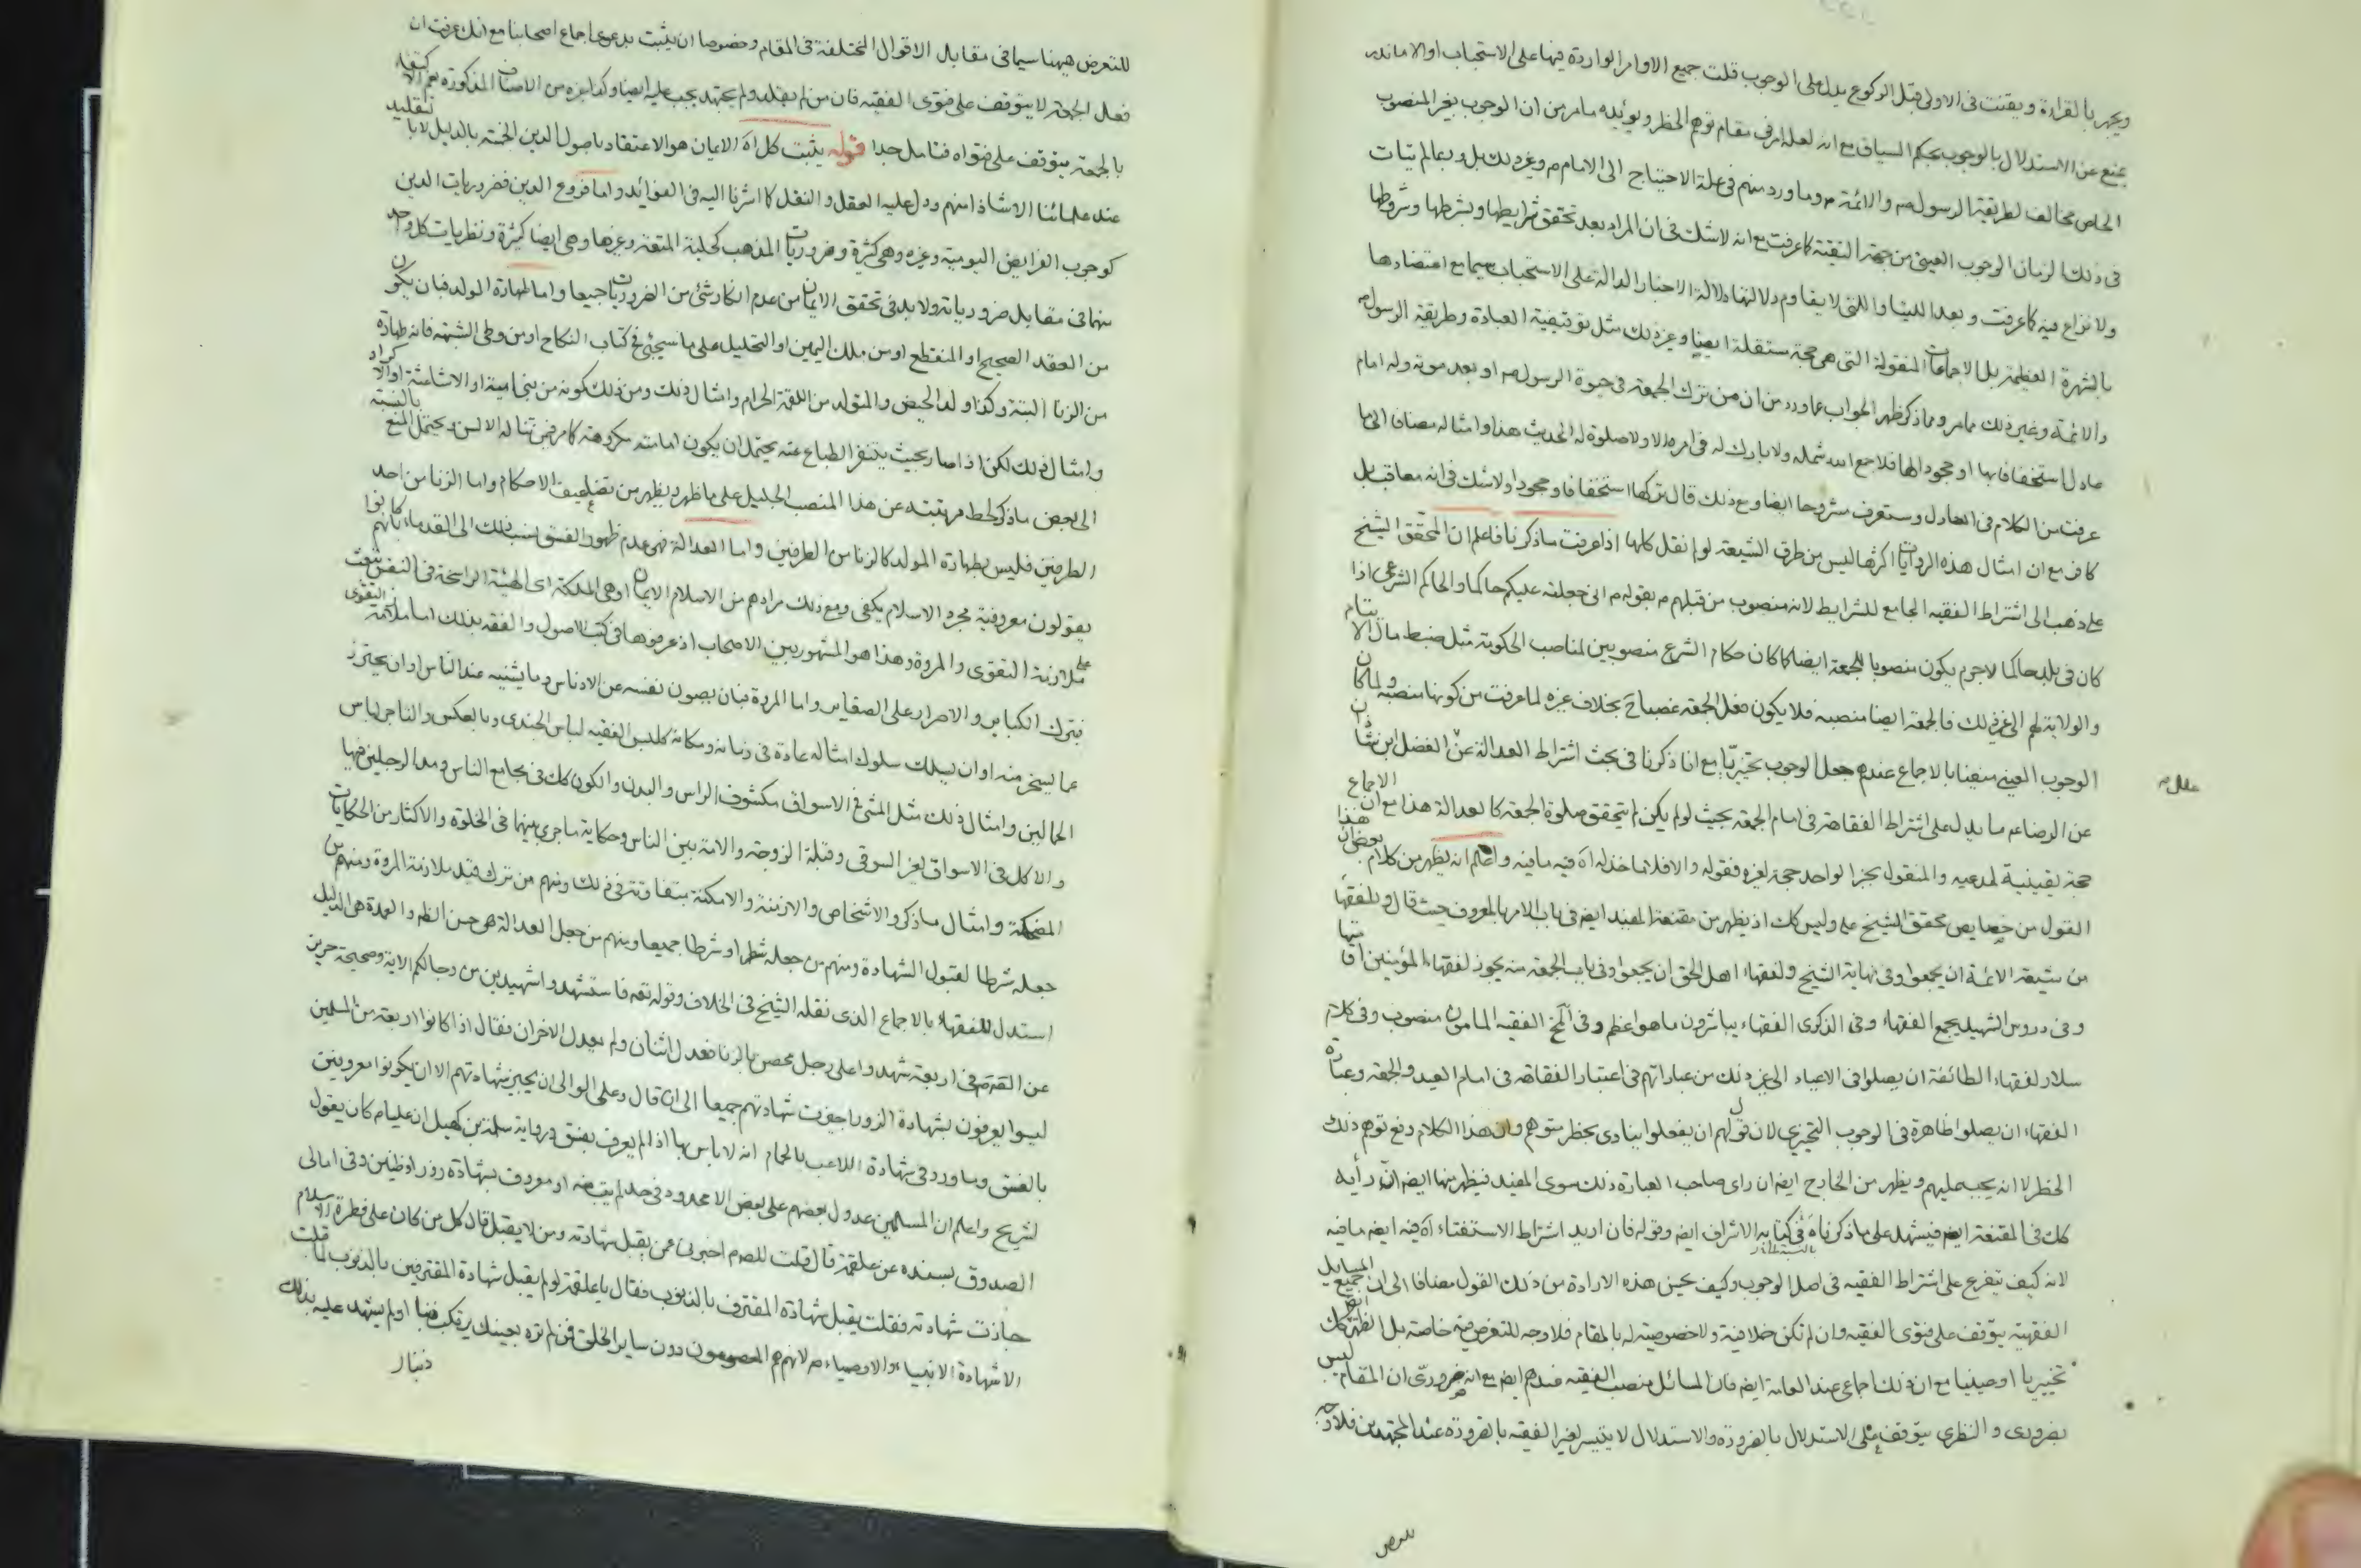 ويجهر بالقراءة ويقنت في الاولى قبل الركوع يدل على الوجوب قلت جميع الاوامر الواردة فيها على الاستحباب او الا ما ندر
يمنع عن الاستدلال بالوجوب بحكم السياق مع انه لعله امر في مقام توهم الحظر ويؤيده ما مر من ان الوجوب بغير المنصوب
الخاص مخالف لطريقة الرسول ص والائمة م وما ورد منهم في علة الاحتياج الى الامام م وغير ذلك بل وربما لم يتات
في ذلك الزمان الوجوب العيني من جهة التقية كما عرفت مع انه لا شك في ان المراد بعد تحقق شرايطها وبشرطها وشروطها
ولا نزاع فيه كما عرفت وبعد اللتيا واللتي لا يقاوم دلالتها دلالة الاخبار الدالة على الاستحباب سيما مع اعتضادها
بالشهرة العظيمة بل الاجماعات المنقولة التي هي حجة مستقلة ايضا وغير ذلك مثل توقيفية العبادة وطريقة الرسول ص
والائمة وغير ذلك مما مر ومما ذكر ظهر الجواب عما ورد من ان من ترك الجمعة في حيوة الرسول ص او بعد موته وله امام
عادل استخفافا بها او جحودا لها فلا جمع الله شمله ولا بارك له في امره الا ولا صلوة له الحديث هذا وامثاله مضافا الى ما
عرفت من الكلام في العادل وستعرف مشروحا ايضا ومع ذلك قال تركها استخفافا وجحودا ولا شك في انه معاقب بل
كافر مع ان امثال هذه الروايات اكثرها ليس من طرق الشيعة لو لم نقل كلها اذا عرفت ما ذكرنا فاعلم ان المحقق الشيخ
علي ذهب الى اشتراط الفقيه الجامع للشرايط لانه منصوب من قبلهم م بقوله م اني جعلته عليكم حاكما والحاكم الشرعي اذا
كان في بلد حاكما لا جرم يكون منصوبا للجمعة ايضا كما كان حكام الشرع منصوبين لمناصب الحكومة مثل ضبط مال الايتام
والولاية لهم الى غير ذلك فالجمعة ايضا منصبه فلا يكون فعل الجمعة غصبا ح بخلاف غيره لما عرفت من كونها منصبه ولما كان
الوجوب العيني منفيا بالاجماع عندهم جعل الوجوب تخييريا مع انا ذكرنا في بحث اشتراط العدالة عن الفضل ابن شاذان
علل ص
عن الرضا ع ما يدل على اشتراط الفقاهة في امام الجمعة بحيث لو لم يكن لم يتحقق صلوة الجمعة كالعدالة هذا مع ان الاجماع
حجة يقينية لمدعيه والمنقول بخبر الواحد حجة لغيره فقوله والا فلا ماخذ له اه فيه ما فيه واعلم انه يظهر من كلام بعض ان هذا
القول من خصايص محقق الشيخ علي وليس كك اذ يظهر من مقنعة المفيد ايض في باب الامر بالمعروف حيث قال وللفقهاء
من شيعة الائمة ان يجمعوا وفي نهاية الشيخ ولفقهاء اهل الحق ان يجمعوا وفي باب الجمعة منه يجوز لفقهاء المؤمنين اقامتها
وفي دروس الشهيد يجمع الفقهاء وفي الذكرى الفقهاء يباشرون ما هو اعظم وفي الفقيه المامون منصوب وفي كلام
سلار لفقهاء الطائفة ان يصلوا في الاعياد الى غير ذلك من عباراتهم في اعتبار الفقاهة في امام العيد والجمعة وعبارة
الفقهاء ان يصلوا ظاهرة في الوجوب التخييري لان قولهم ان يفعلوا ينادى بحظر متوهم وان هذا الكلام دفع توهم ذلك
الحظر لا انه يجب عليهم ويظهر من الخارج ايض ان راى صاحب العبارة ذلك سوى المفيد فيظهر منها ايض ان رأيه
كك في المقنعة ايض فيشهد على ما ذكرناه في كتابه الاشراف ايض وقوله فان اريد اشتراط الاستفتاء اه فيه ايض ما فيه
لانه كيف يتفرع على اشتراط الفقيه في اصل الوجوب وكيف يحسن هذه الارادة من ذلك القول مضافا الى ان جميع المسايل
الفقهية يتوقف على فتوى الفقيه وان لم تكن خلافية ولا خصوصية له بالمقام فلا وجه للتعرض فيه خاصة بل الظهر كك ايض
تخييريا او عينيا مع ان ذلك اجماعي عند العامة ايض فان المسائل منصب الفقيه عندهم ايض مع انه ضروري ان المقام ليس
بضروري والنظري يتوقف على الاستدلال بالضرورة والاستدلال لا يتيسر لغير الفقيه بالضرورة عند المجتهدين فلا وجه
للتعرض
للتعرض ههنا سيما في مقابل الاقوال المختلفة في المقام وخصوصا ان يثبت بدعوى اجماع اصحابنا مع انك عرفت ان
فعل الجمعة لا يتوقف على فتوى الفقيه فان من لم يقلد ولم يجتهد يجب عليه ايضا وكذا غيره من الاصناف المذكورة نعم الاكتفاء
بالجمعة يتوقف على فتواه فتامل جدا قوله يثبت كل اه الايمان هو الاعتقاد باصول الدين الخمسة بالدليل لا بالتقليد
عند علمائنا الا شاذا منهم ودل عليه العقل والنقل كما اشرنا اليه في الفوائد واما فروع الدين فضروريات الدين
كوجوب الفرايض اليومية وغيره وهي كثيرة وضروريات المذهب كحلية المتعة وغيرها وهي ايضا كثيرة ونظريات كل واحد
منهما في مقابل ضرورياته ولا بد في تحقق الايمان من عدم انكار شئ من الضروريات جميعا واما طهارة المولد فبان يكون
من العقد الصحيح او المنقطع او من ملك اليمين او التحليل على ما سيجئ في كتاب النكاح او من وطى الشبهة فانه طهارة
من الزنا البتة وكذا ولد الحيض والمتولد من اللقمة الحرام وامثال ذلك ومن ذلك كونه من بني امية او الاشاعثة او الاكراد
وامثال ذلك لكن اذا صار بحيث يتنفر الطباع عنه يحتمل ان يكون امامته مكروهة كما مر فمن تناله الالسن ويحتمل المنع بالنسبة
الى بعض ما ذكر لحط مرتبته عن هذا المنصب الجليل على ما ظهر ويظهر من تضاعيف الاحكام واما الزنا من احد
الطرفين فليس بطهارة المولد كالزنا من الطرفين واما العدالة فهي عدم ظهور الفسق نسب ذلك الى القدماء بانهم كانوا
يقولون معروفية مجرد الاسلام يكفي ومع ذلك مرادهم من الاسلام الايمان او هي الملكة اي الهيئة الراسخة في النفس تبعث
على ملازمة التقوى والمروة وهذا هو المشهور بين الاصحاب اذ عرفوها في كتب الاصول والفقه بذلك اما ملازمة التقوى
فبترك الكبائر والاصرار على الصغاير واما المروة فبان يصون نفسه عن الادناس وما يشينه عند الناس او ان يحترز
عما يسخر منه او ان يسلك سلوك امثاله عادة في زمانه ومكانه كلبس الفقيه لباس الجندي وبالعكس والتاجر لباس
الحمالين وامثال ذلك مثل المشي في الاسواق مكشوف الراس والبدن والكون كك في مجامع الناس ومد الرجلين فيها
والاكل في الاسواق لغير السوقي وقبلة الزوجة والامة بين الناس وحكاية ما جرى بينهما في الخلوة والاكثار من الحكايات
المضحكة وامثال ما ذكر والاشخاص والازمنة والامكنة متفاوتة في ذلك ومنهم من ترك قيد ملازمة المروة ومنهم من
جعله شرطا لقبول الشهادة ومنهم من جعله شطرا وشرطا جميعا ومنهم من جعل العدالة هي حسن الظاهر والعمدة هي الدليل
استدل للفقهاء بالاجماع الذي نقله الشيخ في الخلاف وقوله تعه فاستشهدوا شهيدين من رجالكم الاية وصحيحة حريز
عن الص م في اربعة شهدوا على رجل محصن بالزنا فعدل اثنان ولم يعدل الاخران فقال اذا كانوا اربعة من المسلمين
ليسوا يعرفون بشهادة الزور اجيزت شهادتهم جميعا الى ان قال وعلى الوالى ان يجيز شهادتهم الا ان يكونوا معروفين
بالفسق وما ورد في شهادة اللاعب بالحمام انه لا باس بها اذا لم يعرف بفسق ورواية سلمة بن كهيل ان عليا م كان يقول
لشريح واعلم ان المسلمين عدول بعضهم على بعض الا محدود في حد لم يتب منه او معروف بشهادة زور او ظنين وفي امالى
الصدوق بسنده عن علقمة قال قلت للص م اخبرني عمن يقبل شهادته ومن لا يقبل قال كل من كان على فطرة الاسلام
جازت شهادته فقلت يقبل شهادة المقترف بالذنوب فقال يا علقمة لو لم يقبل شهادة المقترفين بالذنوب لما قبلت
الا شهادة الانبياء والاوصياء م لانهم هم المعصومون دون ساير الخلق فمن لم تره بعينك يرتكب ذنبا او لم يشهد عليه بذلك